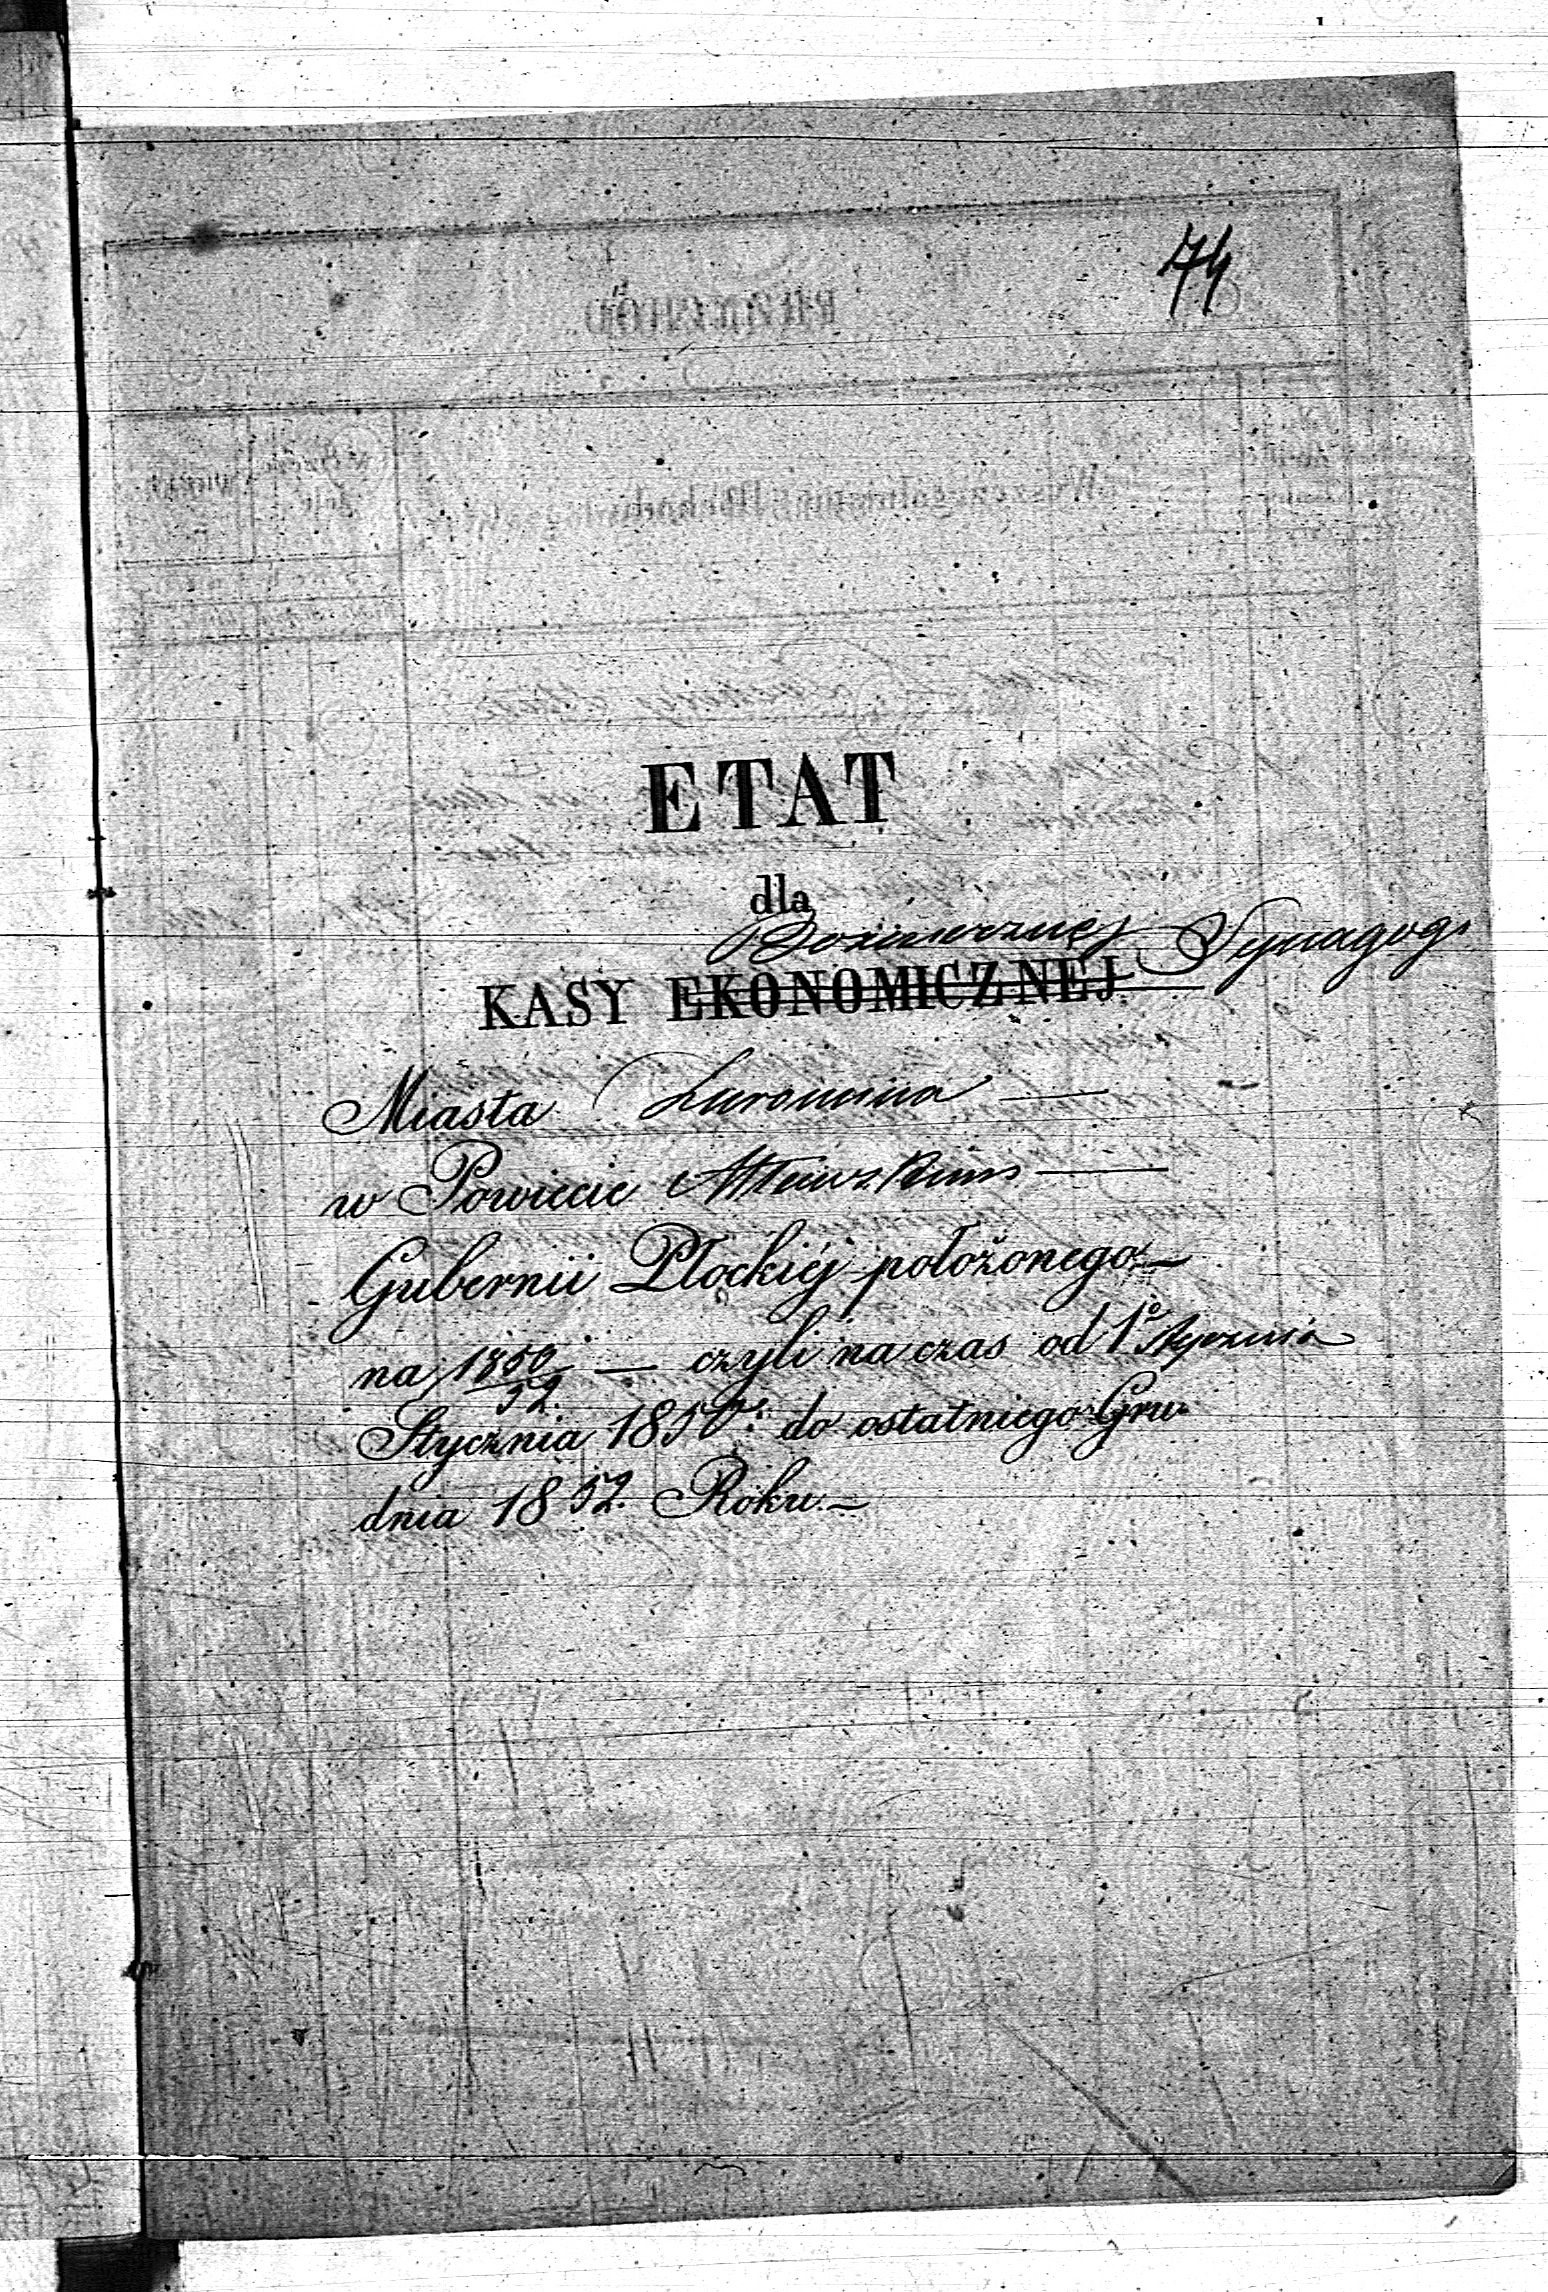 74
ETAT
dla
Bożnicznej Synagogi
KASY EKONOMICZNEJ
Miasta Żuromina
w Powiecie Mławskim
Gubernii Płockiéj położonego
na 1850/52. czyli na czas od 1° Stycznia
Stycznia 1850 r. do ostatniego Gru-
dnia 1852. Roku